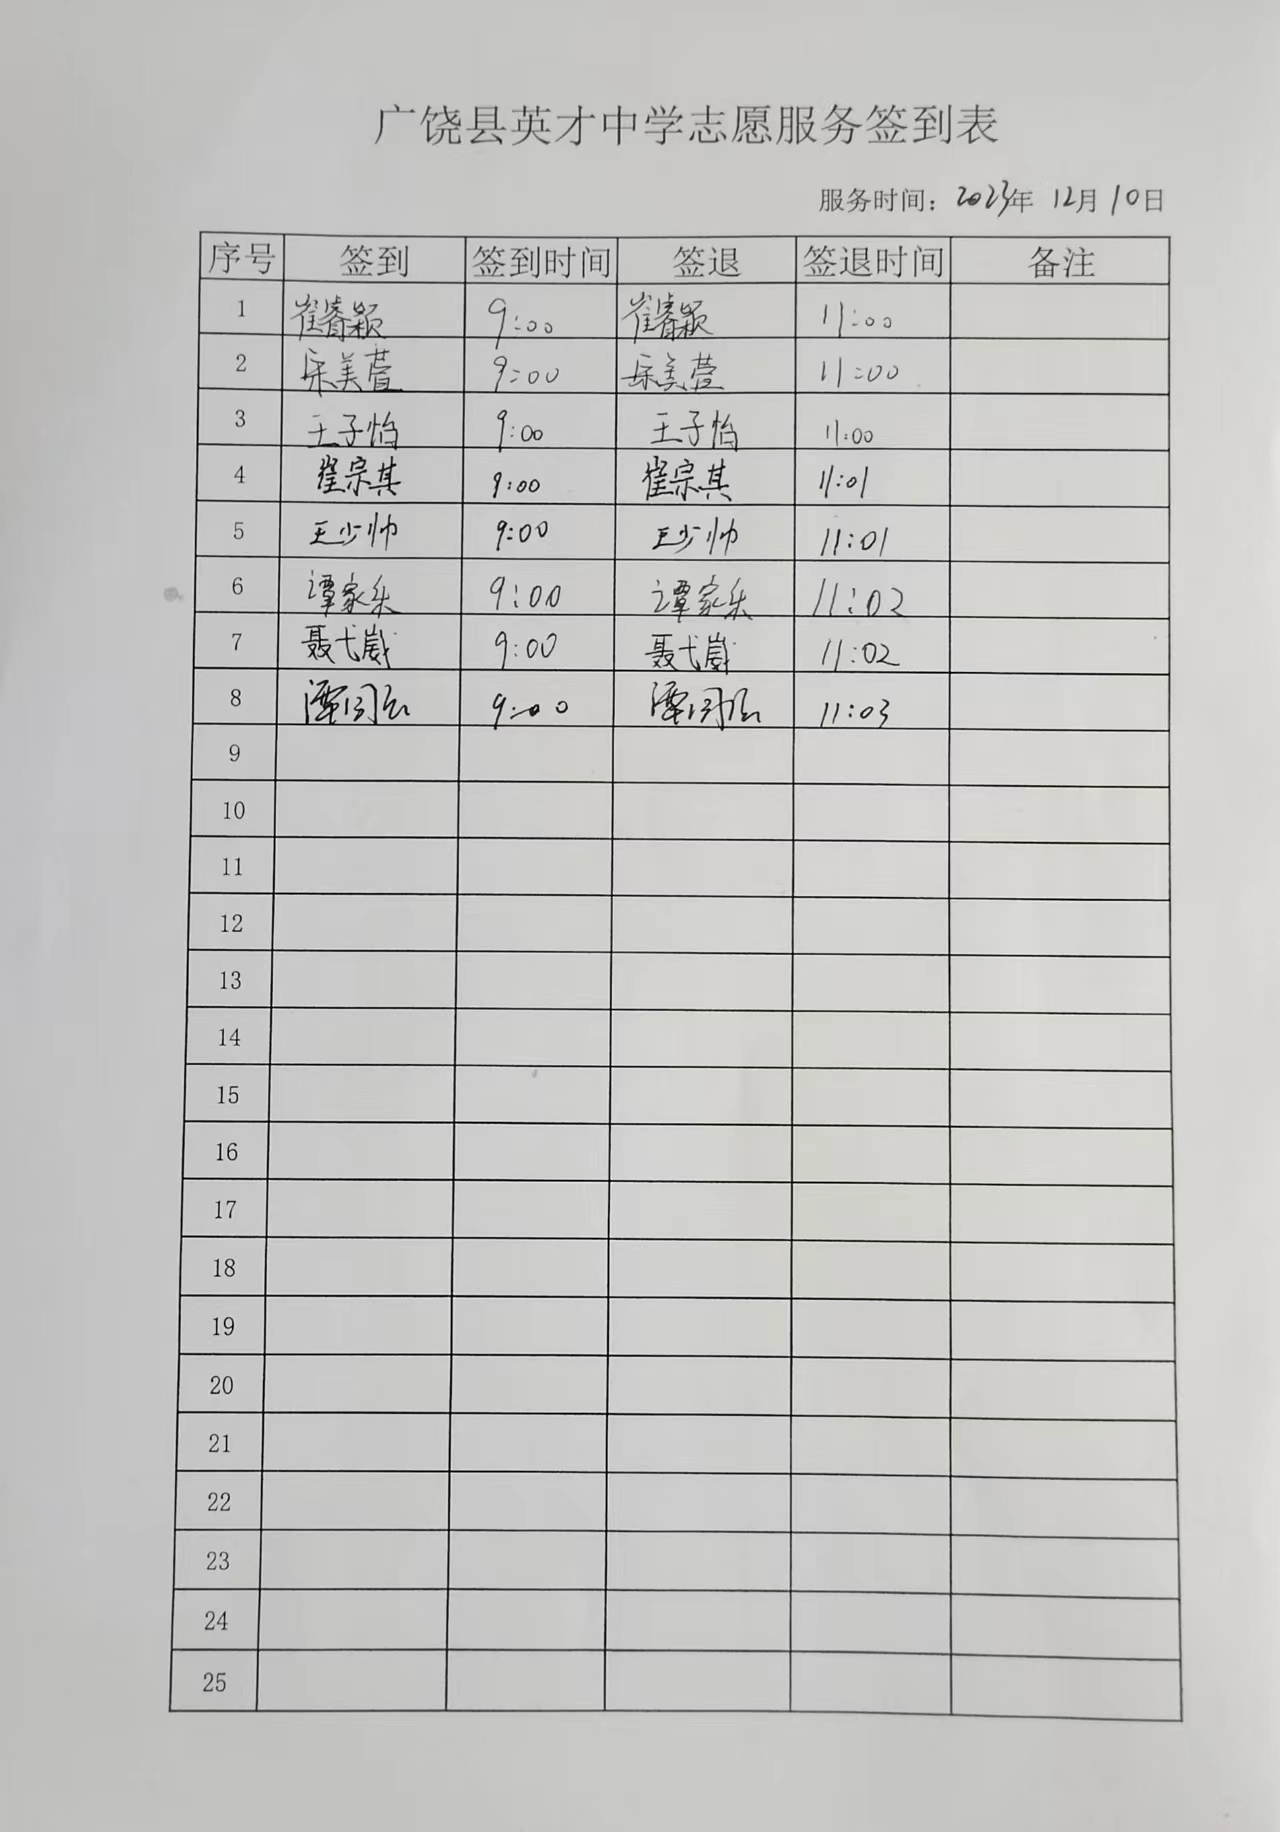 广饶县英才中学志愿服务签到表
服务时间：2023年 12月10日
序号 签到 签到时间 签退 签退时间 备注
1 崔睿颖 9:00 崔睿颖 11:00
2 宋美萱 9:00 宋美萱 11:00
3 王子怡 9:00 王子怡 11:00
4 崔宗其 9:00 崔宗其 11:01
5 王少帅 9:00 王少帅 11:01
6 谭家乐 9:00 谭家乐 11:02
7 聂弋崴 9:00 聂弋崴 11:02
8 9:00 11:03
9
10
11
12
13
14
15
16
17
18
19
20
21
22
23
24
25